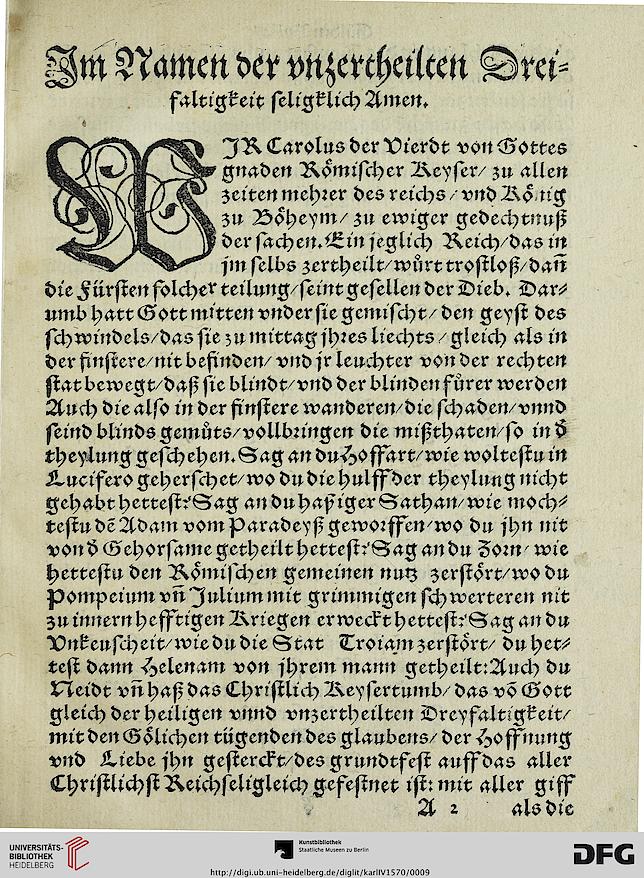 Im Namen der vnzertheilten Drei⸗
faltigkeit seligklich Amen.
WIR Carolus der Vierdt von Gottes
gnaden Römischer Keyser/ zu allen
zeiten mehrer des reichs / vnd König
zu Böheym/ zu ewiger gedechtnuß
der sachen. Ein jeglich Reich/ das in
jm selbs zertheilt/ wůrt trostloß/ dañ
die Fürsten solcher teilung/ seint gesellen der Dieb. Dar⸗
umb hatt Gott mitten vnder sie gemischt/ den geyst des
schwindels/ das sie zu mittag jhres liechts / gleich als in
der finstere/ nit befinden/ vnd jr leuchter von der rechten
stat bewegt/ daß sie blindt/ vnd der blinden fůrer werden
Auch die also in der finstere wanderen/ die schaden/ vnnd
seind blinds gemůts/ vollbringen die mißthaten/ so in d̄
theylung geschehen. Sag an du Hoffart/ wie woltestu in
Lucifero geherschet/ wo du die hulff der theylung nicht
gehabt hettest? Sag an du haßiger Sathan/ wie moch⸗
testu dē Adam vom Paradeyß geworffen/ wo du jhn nit
von d̄ Gehorsame getheilt hettest? Sag an du Zorn/ wie
hettestu den Römischen gemeinen nutz zerstört/ wo du
Pompeium vñ Julium mit grimmigen schwerteren nit
zu innern hefftigen Kriegen erweckt hettest? Sag an du
Vnkeuscheit/ wie du die Stat Troiam zerstört/ du het⸗
test dann Helenam von jhrem mann getheilt: Auch du
Neidt vñ haß das Christlich Keysertumb/ das vō Gott
gleich der heiligen vnnd vnzertheilten Dreyfaltigkeit/
mit den Gölichen tügenden des glaubens/ der Hoffnung
vnd Liebe jhn gesterckt/ des grundtfest auff das aller
Christlichst Reich seligleich gefestnet ist: mit aller giff
A 2 als die
UNIVERSITÄTS-
BIBLIOTHEK
HEIDELBERG
Kunstbibliothek
Staatliche Museen zu Berlin
DFG
http://digi.ub.uni-heidelberg.de/diglit/karlIV1570/0009